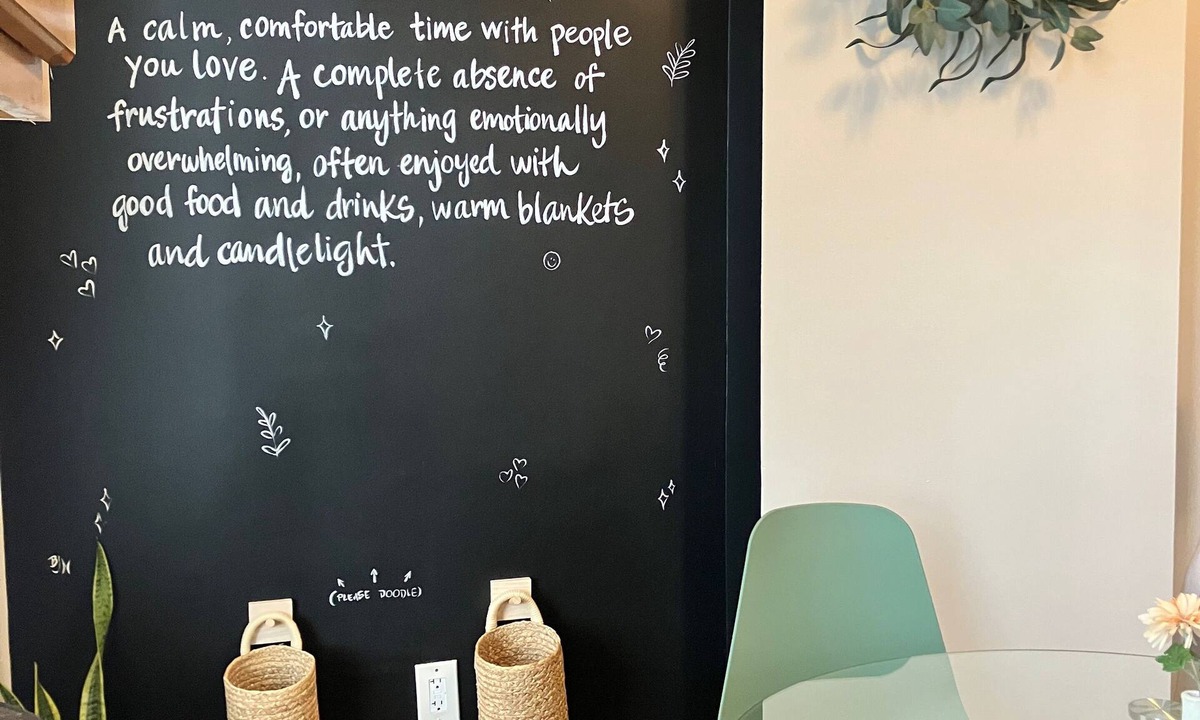 A calm, comfortable time with people
you love. A complete absence of
frustrations, or anything emotionally
overwhelming, often enjoyed with
good food and drinks, warm blankets
and candlelight.
(PLEASE DOODLE)